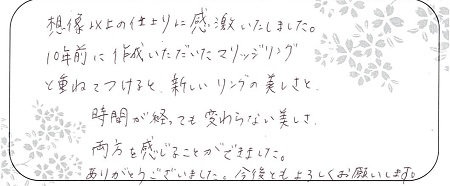 想像以上の仕上りに感激いたしました。
10年前に作成いただいたマリッジリング
と重ねてつけると、新しいリングの美しさと、
時間が経っても変わらない美しさ、
両方を感じることができました。
ありがとうございました。今後ともよろしくお願いします。